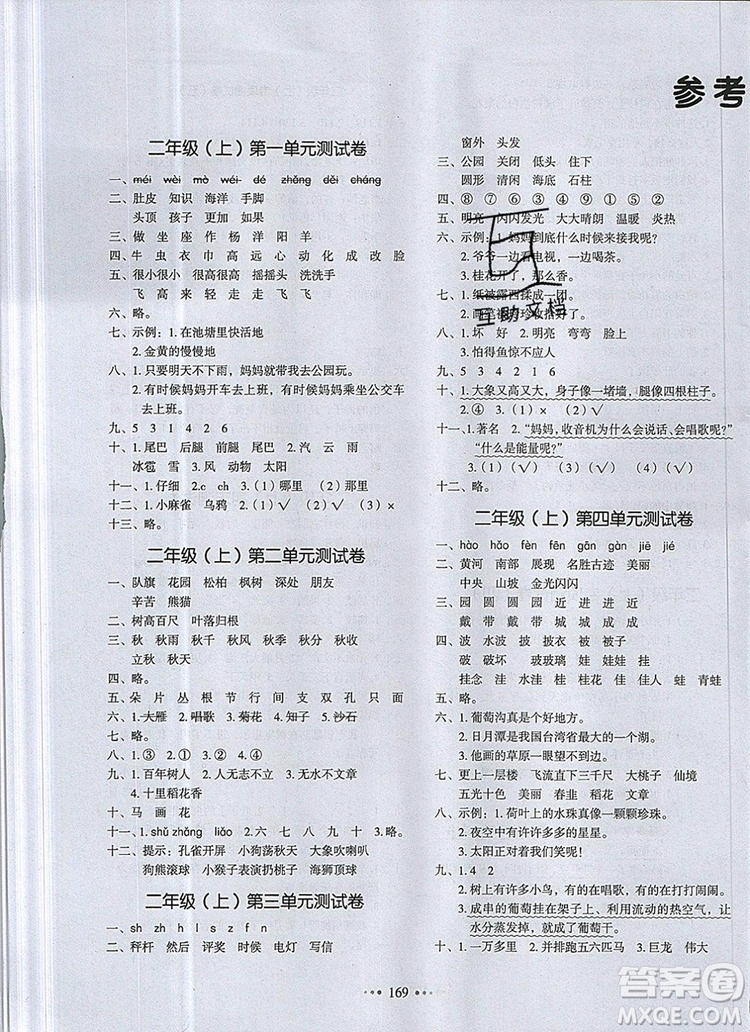 参考
二年级（上）第一单元测试卷
一、méi wèi mò wéi- dé zhǒng děi cháng
二、肚皮 知识 海洋 手脚
头顶 孩子 更加 如果
三、做 坐 座 作 杨 洋 阳 羊
四、牛 虫 衣 巾 高 远 心 动 化 成 改 脸
五、很小很小 很高很高 摇摇头 洗洗手
飞 高 来 轻 走 走 飞 飞
六、略。
七、示例：1.在池塘里快活地
2.金黄的慢慢地
八、1.要是明天不下雨，妈妈就带我去公园玩。
2.有时候妈妈开车去上班，有时候妈妈乘坐公交车
去上班。
九、5 3 1 4 2 6
十、1.尾巴 后腿 前腿 尾巴 2.汽 云 雨
冰雹 雪 3.风 动物 太阳
十一、1.仔细 2.c ch 3.（1）哪里 （2）那里
十二、1.小麻雀 乌鸦 2.（1）√ （2）√ （3）×
十三、略。
二年级（上）第二单元测试卷
一、队旗 花园 松柏 枫树 深处 朋友
辛苦 熊猫
二、树高百尺 叶落归根
三、秋 秋雨 秋千 秋风 秋季 秋分 秋收
立秋 秋天
四、略。
五、朵 片 丛 根 节 行 间 支 双 孔 只 面
六、1.大雁 2.唱歌 3.菊花 4.知子 5.沙石
七、略。
八、1.③ 2.① 3.② 4.④
九、1.百年树人 2.人无志不立 3.无水不文章
3.十里稻花香
十、马 画 花
十一、1.shǔ zhǒng liǎo 2.六 七 八 九 十 3.略。
十二、提示：孔雀开屏 小狗荡秋千 大象吹喇叭
狗熊滚球 小猴子骑车 海狮顶球
二年级（上）第三单元测试卷
一、sh z h l s zh f
二、秤杆 然后 评奖 时候 电灯 写信
窗外 头发
三、公园 关闭 低头 住下
圆形 清闲 海底 石柱
四、⑧ ⑦ ⑥ ③ ④ ⑨ ① ⑤ ②
五、明亮 闪闪发光 大大晴朗 温暖 炎热
六、示例：1.妈妈到底什么时候来接我？
2.爷爷一边看电视，一边喝茶。
3.桂花开了，那么香。
七、1.纸被露西揉成一团。
八、1.坏 好 2.明亮 弯弯 脸上
3.怕得鱼惊不应人
九、5 3 4 2 1 6
十、1.大象又高又大，身子像一堵墙，腿像四根柱子。
2.④ 3.（1）× （2）√
十一、1.著名 2.“妈妈，收音机为什么会说话、会唱歌呢？”
“什么是能量呢？”
3.（1）√ （2）√ （3）×
十二、略。
二年级（上）第四单元测试卷
一、hào hǎo fèn fēn gān gàn jiē jié
二、黄河 南部 展现 名胜古迹 美丽
中央 山坡 金光闪闪
三、园 圆 圆 园 近 进 近 进
戴 带 带 戴 城 城 成 成
四、波 水波 披 披衣 被 被子
破 破坏 玻 玻璃 娃 娃娃 洼
挂念 洼 洼地 桂 桂花 佳 佳人 蛙 青蛙
五、略。
六、1.葡萄沟真是个好地方。
2.日月潭是我国台湾省最大的一个湖。
3.他画的草原一眼望不到边。
七、更上一层楼 飞流直下三千尺 大都 桃子 仙境
五光十色 美而 春韭 稻花
八、示例：1.荷叶上的水珠真像一颗颗珍珠。
2.夜空中有许许多多的星星。
3.太阳正对着我们微笑呢！
九、1.4 2
2.树上有许多小鸟，有的在唱歌，有的在打打闹闹。
3.成串的葡萄挂在架子上、利用流动的热空气，让
水分蒸发掉，就成了葡萄干。
十、1.一万多里 2.并排跑五六匹马 3.巨龙 伟大
169
互助文档
答案圈
MXQE.COM